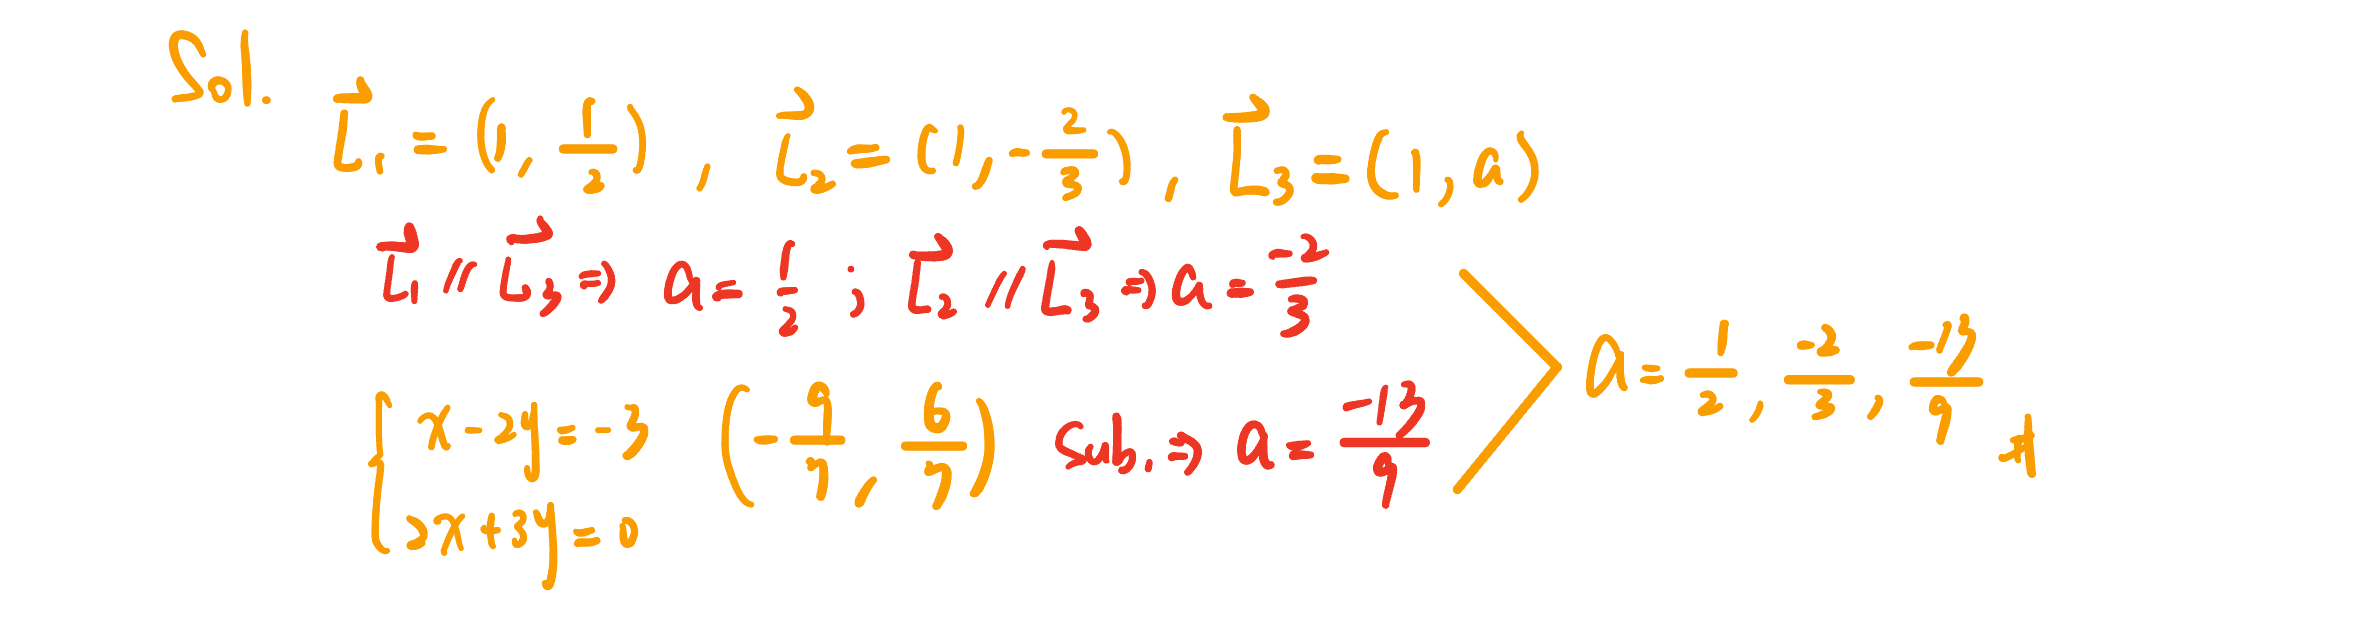 Sol.
L⃗₁ = (1, 1/2) , L⃗₂ = (1, -2/3) , L⃗₃ = (1, a)
L⃗₁ // L⃗₃ ⇒ a = 1/2 ; L⃗₂ // L⃗₃ ⇒ a = -2/3
{ x - 2y = -3
2x + 3y = 0
(-9/7, 6/7) sub. ⇒ a = -13/9
a = 1/2, -2/3, -13/9 #